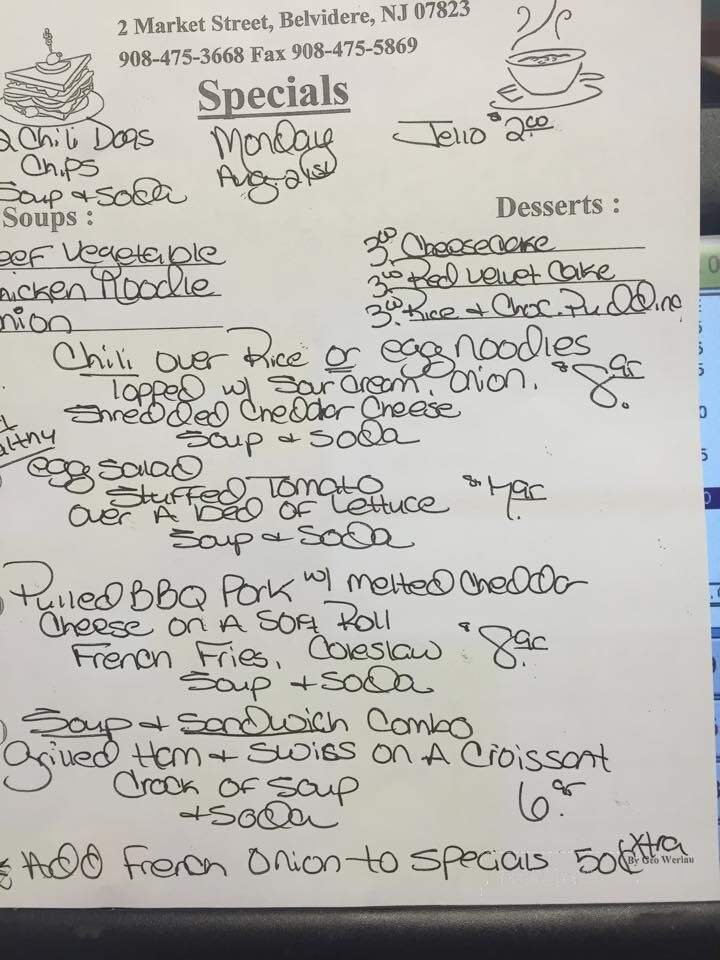 2 Market Street, Belvidere, NJ 07823
908-475-3668 Fax 908-475-5869
Specials
2 Chili Dogs
Chips
Soup & Soda
Monday
Aug. 21st
Jello $2.00
Soups :
eef Vegetable
hicken Noodle
nion
Desserts :
3.00 Cheesecake
3.00 Red Velvet Cake
3.00 Rice & Choc. Pudding
Chili over Rice or egg noodles
Topped w/ Sour Cream, Onion, $8.95
Shredded Cheddar Cheese
Soup & Soda
lthy
egg Salad
Stuffed Tomato $7.95
over A bed of Lettuce
Soup & Soda
Pulled BBQ Pork w/ melted Cheddar
Cheese on A Soft Roll
French Fries, Coleslaw $8.95
Soup & Soda
Soup & Sandwich Combo
Grilled Ham & Swiss on A Croissant
Crock of Soup 6.95
& Soda
Add French Onion to Specials 50¢ Xtra
By Geo Werlau